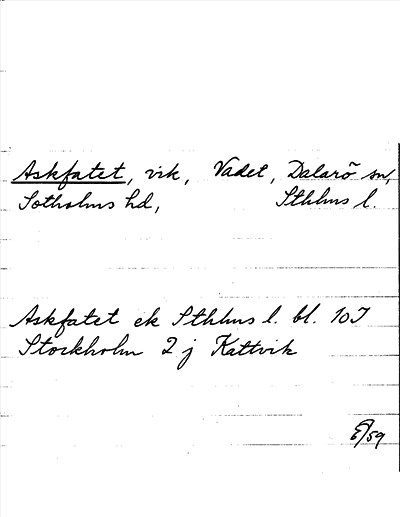 Askfatet, vik, Vadet, Dalarö sn,
Sotholms hd, Sthlms l.
Askfatet ek Sthlms l. bl. 107
Stockholm 2 j Kattvik
/59